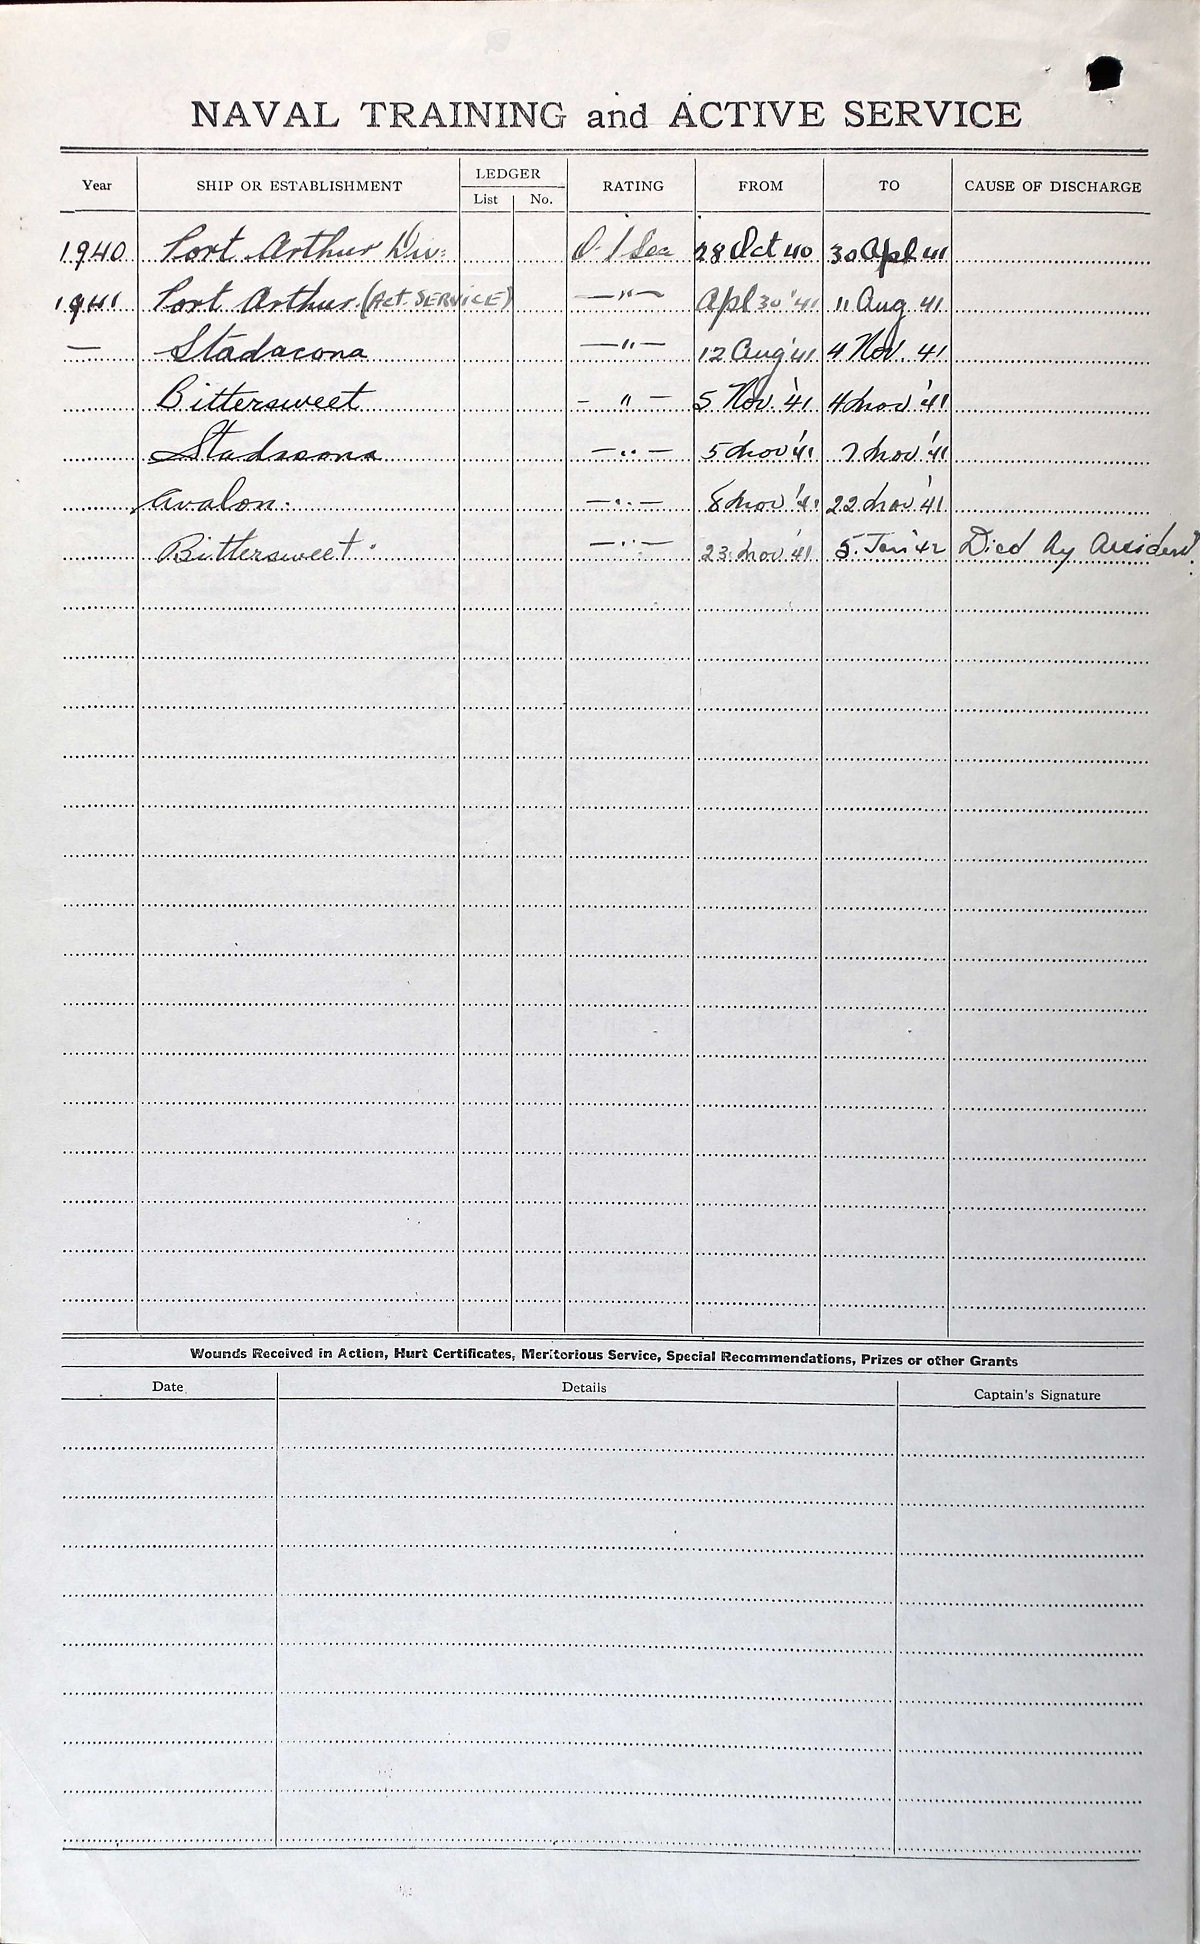 NAVAL TRAINING and ACTIVE SERVICE
Year SHIP OR ESTABLISHMENT LEDGER List No. RATING FROM TO CAUSE OF DISCHARGE
1940 Port Arthur Div: O/Sea 28 Oct 40 30 Apl 41
1941 Port Arthur (ACT. SERVICE) —"— Apl 30 '41 11 Aug 41
— Stadacona —"— 12 Aug '41 4 Nov. 41
Bittersweet - " - 5 Nov. '41 4 Nov '41
Stadacona —"— 5 Nov '41 7 Nov '41
Avalon. —"— 8 Nov '41 22 Nov '41
Bittersweet. —"— 23 Nov '41 5 Jan '42 Died by Accident.
Wounds Received in Action, Hurt Certificates, Meritorious Service, Special Recommendations, Prizes or other Grants
Date Details Captain's Signature